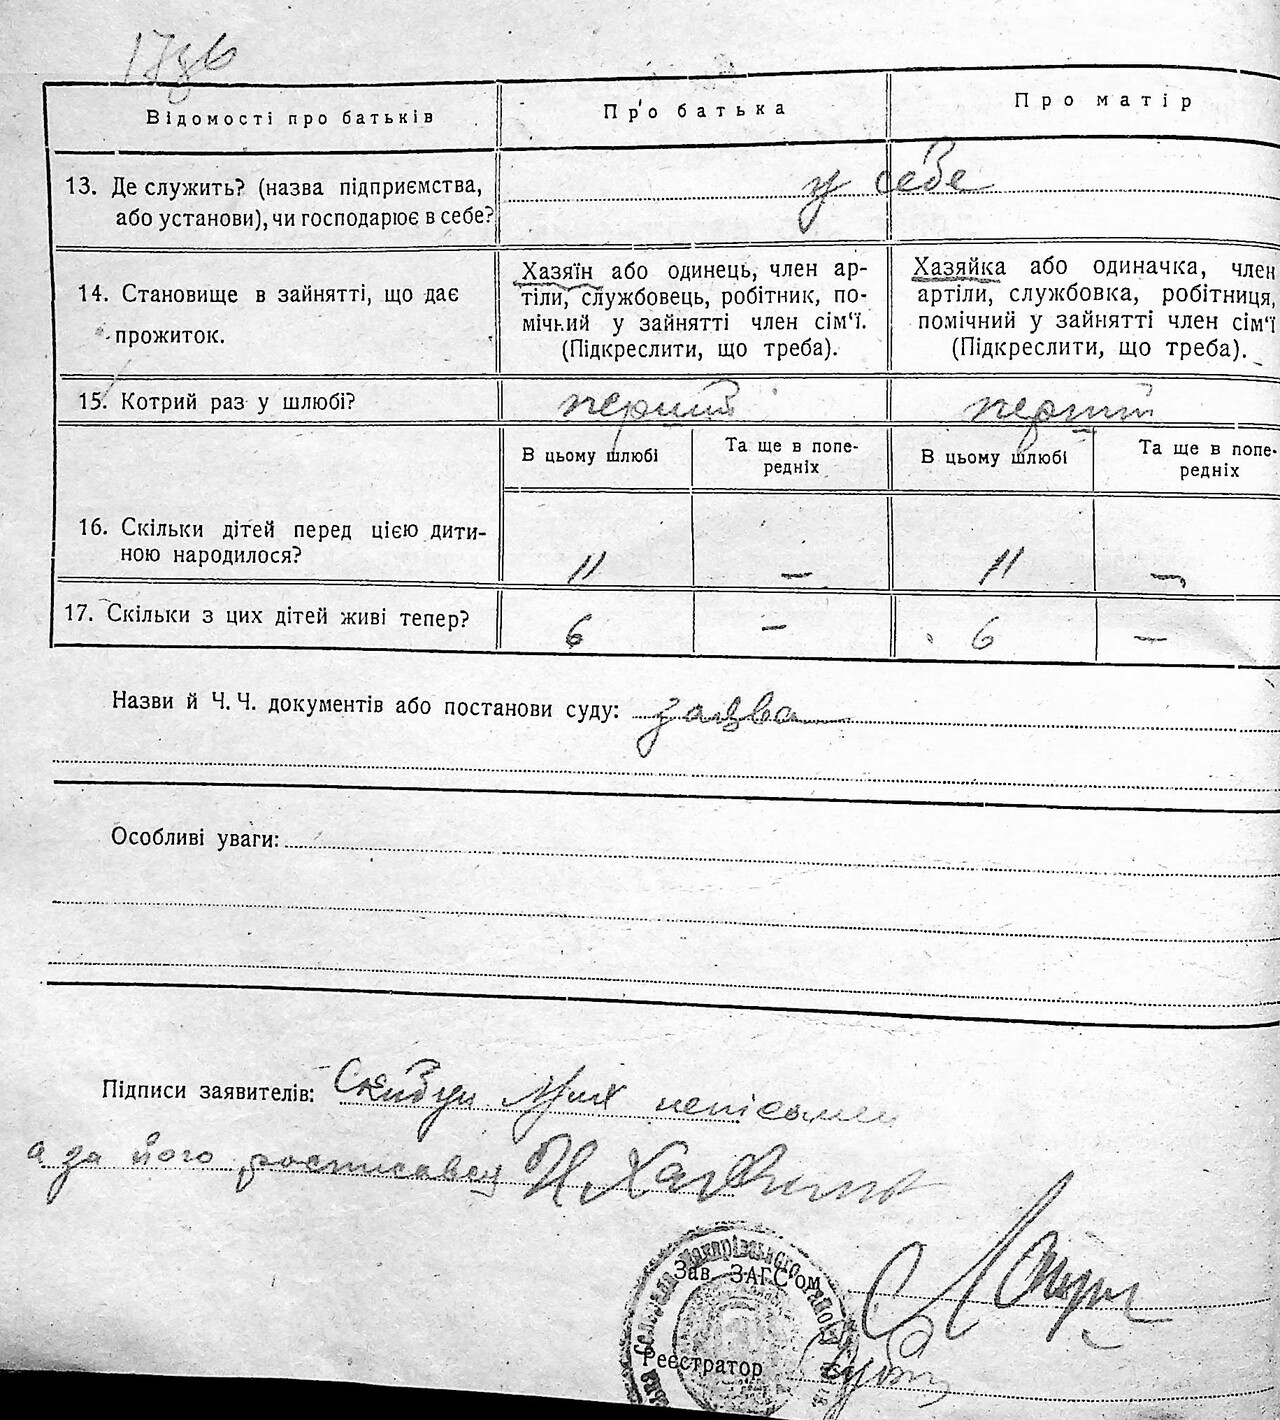 Відомості про батьків
Про батька
Про матір
13. Де служить? (назва підприємства,
або установи), чи господарює в себе?
у себе
14. Становище в зайнятті, що дає
прожиток.
Хазяїн або одинець, член ар-
тіли, службовець, робітник, по-
мічний у зайнятті член сім'ї.
(Підкреслити, що треба).
Хазяйка або одиначка, член
артіли, службовка, робітниця,
помічний у зайнятті член сім'ї
(Підкреслити, що треба).
15. Котрий раз у шлюбі?
перший
перший
В цьому шлюбі
Та ще в попе-
редніх
В цьому шлюбі
Та ще в попе-
редніх
16. Скільки дітей перед цією дити-
ною народилося?
11
—
11
—
17. Скільки з цих дітей живі тепер?
6
—
6
—
Назви й Ч. Ч. документів або постанови суду: заява
Особливі уваги:
Підписи заявителів: Скибун
а за його росписався
Зав. ЗАГС'ом
Реєстратор